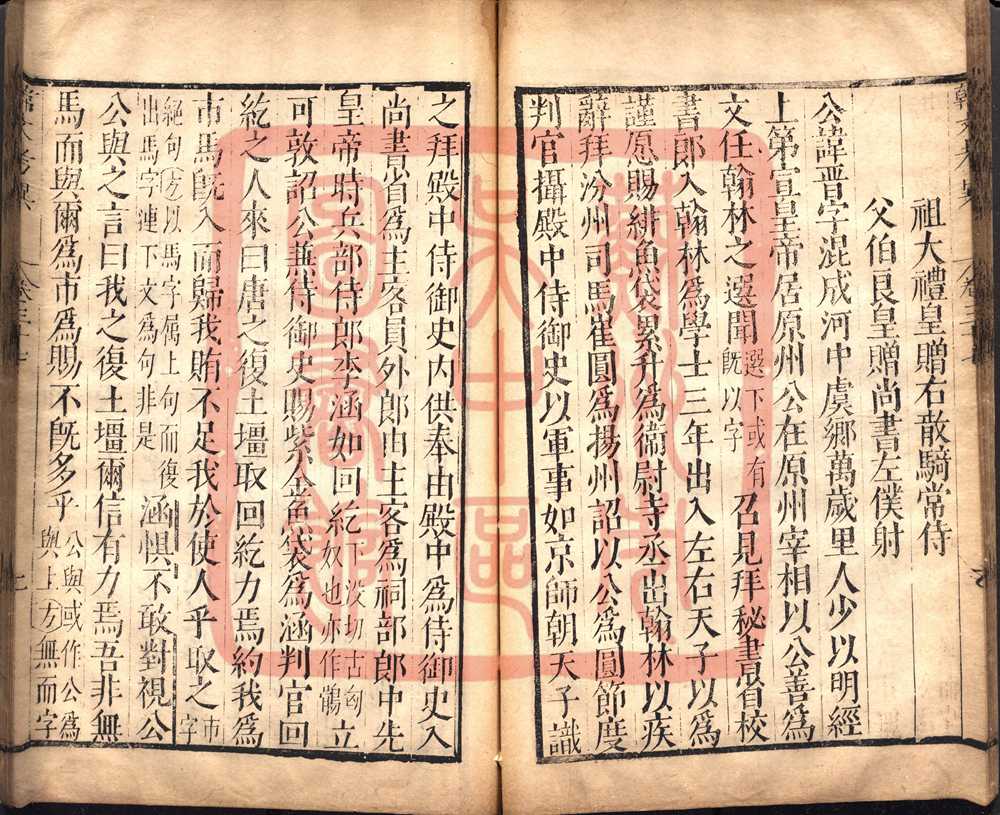 祖大禮皇贈右散騎常侍
父伯良皇贈尚書左僕射
公諱晋字混成河中虞鄉萬歲里人少以明經
上第宣皇帝居原州公在原州宰相以公善爲
文任翰林之選聞選下或有既以字召見拜秘書省校
書郎入翰林爲學士三年出入左右天子以爲
謹愿賜緋魚袋累升爲衞尉寺丞出翰林以疾
辭拜汾州司馬崔圓爲揚州詔以公爲圓節度
判官攝殿中侍御史以軍事如京師朝天子識
之拜殿中侍御史内供奉由殿中爲侍御史入
尚書省爲主客員外郎由主客爲祠部郎中先
皇帝時兵部侍郎李涵如回紇下没切古匈奴也亦作鶻立
可敦詔公兼侍御史賜紫金魚袋爲涵判官回
紇之人來曰唐之復土壃取回紇力焉約我爲
市馬既入而歸我賄不足我於使人乎取之市字
絕句方以馬字屬上句而復出馬字連下文爲句非是涵懼不敢對視公
公與之言曰我之復土壃爾信有力焉吾非無
馬而與爾爲市爲賜不既多乎公與或作公爲與上方無而字
卷三十七
七
圖書館